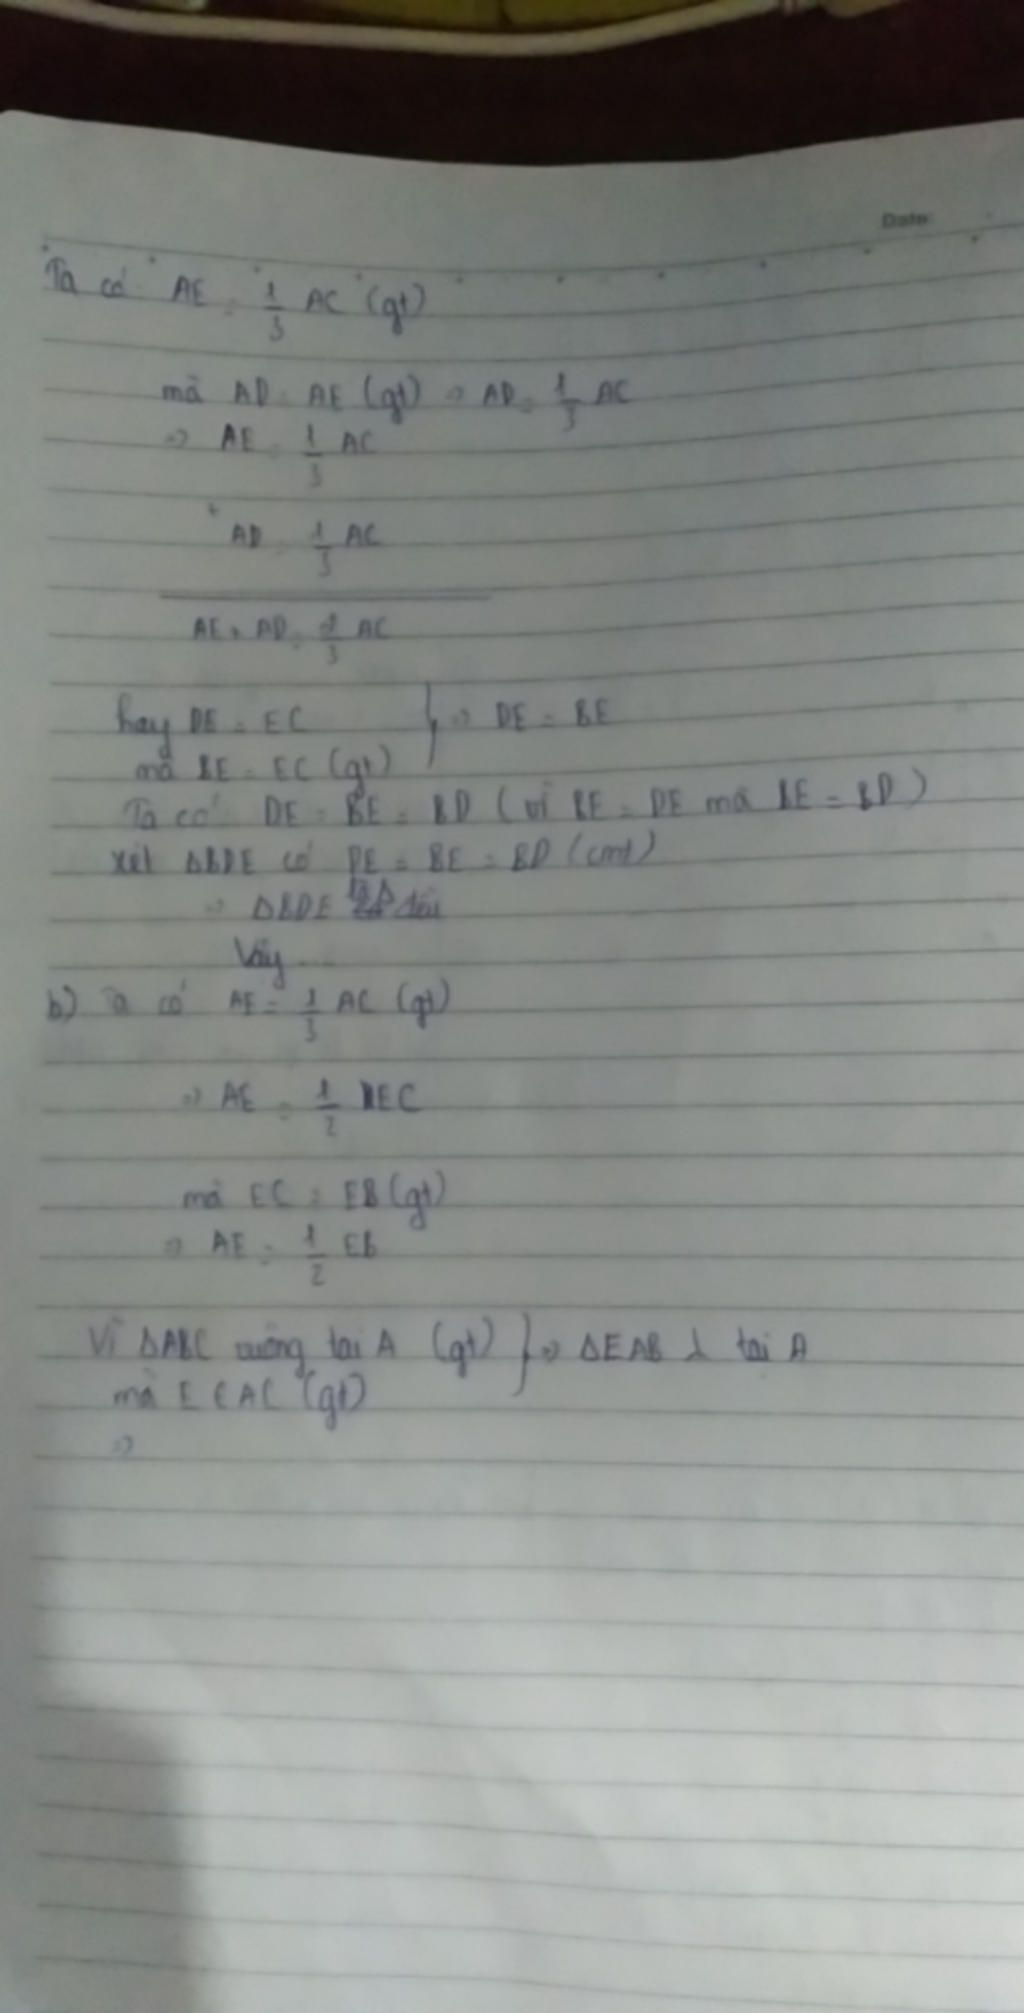 Date:
Ta có AE = 1/3 AC (gt)
mà AD = AE (gt) => AD = 1/3 AC
=> AE = 1/3 AC
+
AD = 1/3 AC
AE + AD = 2/3 AC
hay DE = EC } => DE = BE
mà BE = EC (gt)
Ta có DE = BE = BD (vì BE = DE mà BE = BD)
xét ΔBDE có DE = BE = BD (cmt)
=> ΔBDE là Δ đều
Vậy ...
b) Ta có AE = 1/3 AC (gt)
=> AE = 1/2 EC
mà EC = EB (gt)
=> AE = 1/2 EB
Vì ΔABC vuông tại A (gt) } => ΔEAB ⊥ tại A
mà E ∈ AC (gt)
=>